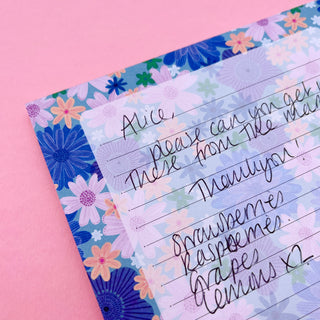 Alice,
please can you get
these from the
Thankyou!
Strawberries
Raspberries.
Grapes
Lemons x